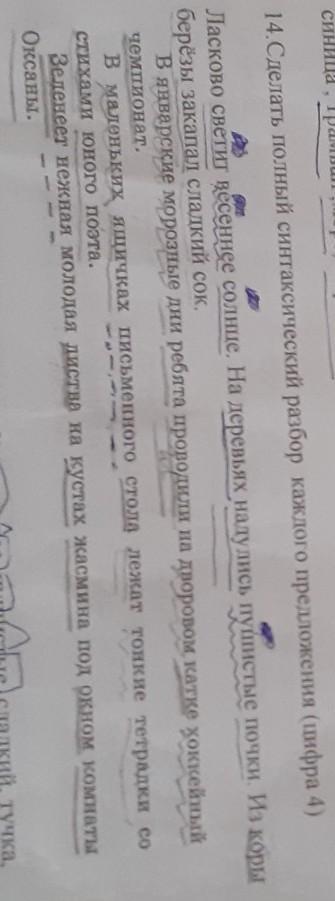 синица,
14.Сделать полный синтаксический разбор каждого предложения (цифра 4)
Ласково светит весеннее солнце. На деревьях надулись пушистые почки. Из коры
берёзы закапал сладкий сок.
В январские морозные дни ребята проводили на дворовом катке хоккейный
чемпионат.
В маленьких ящичках письменного стола лежат тонкие тетрадки со
стихами юного поэта.
Зеленеет нежная молодая листва на кустах жасмина под окном комнаты
Оксаны.
сладкий, тучка,